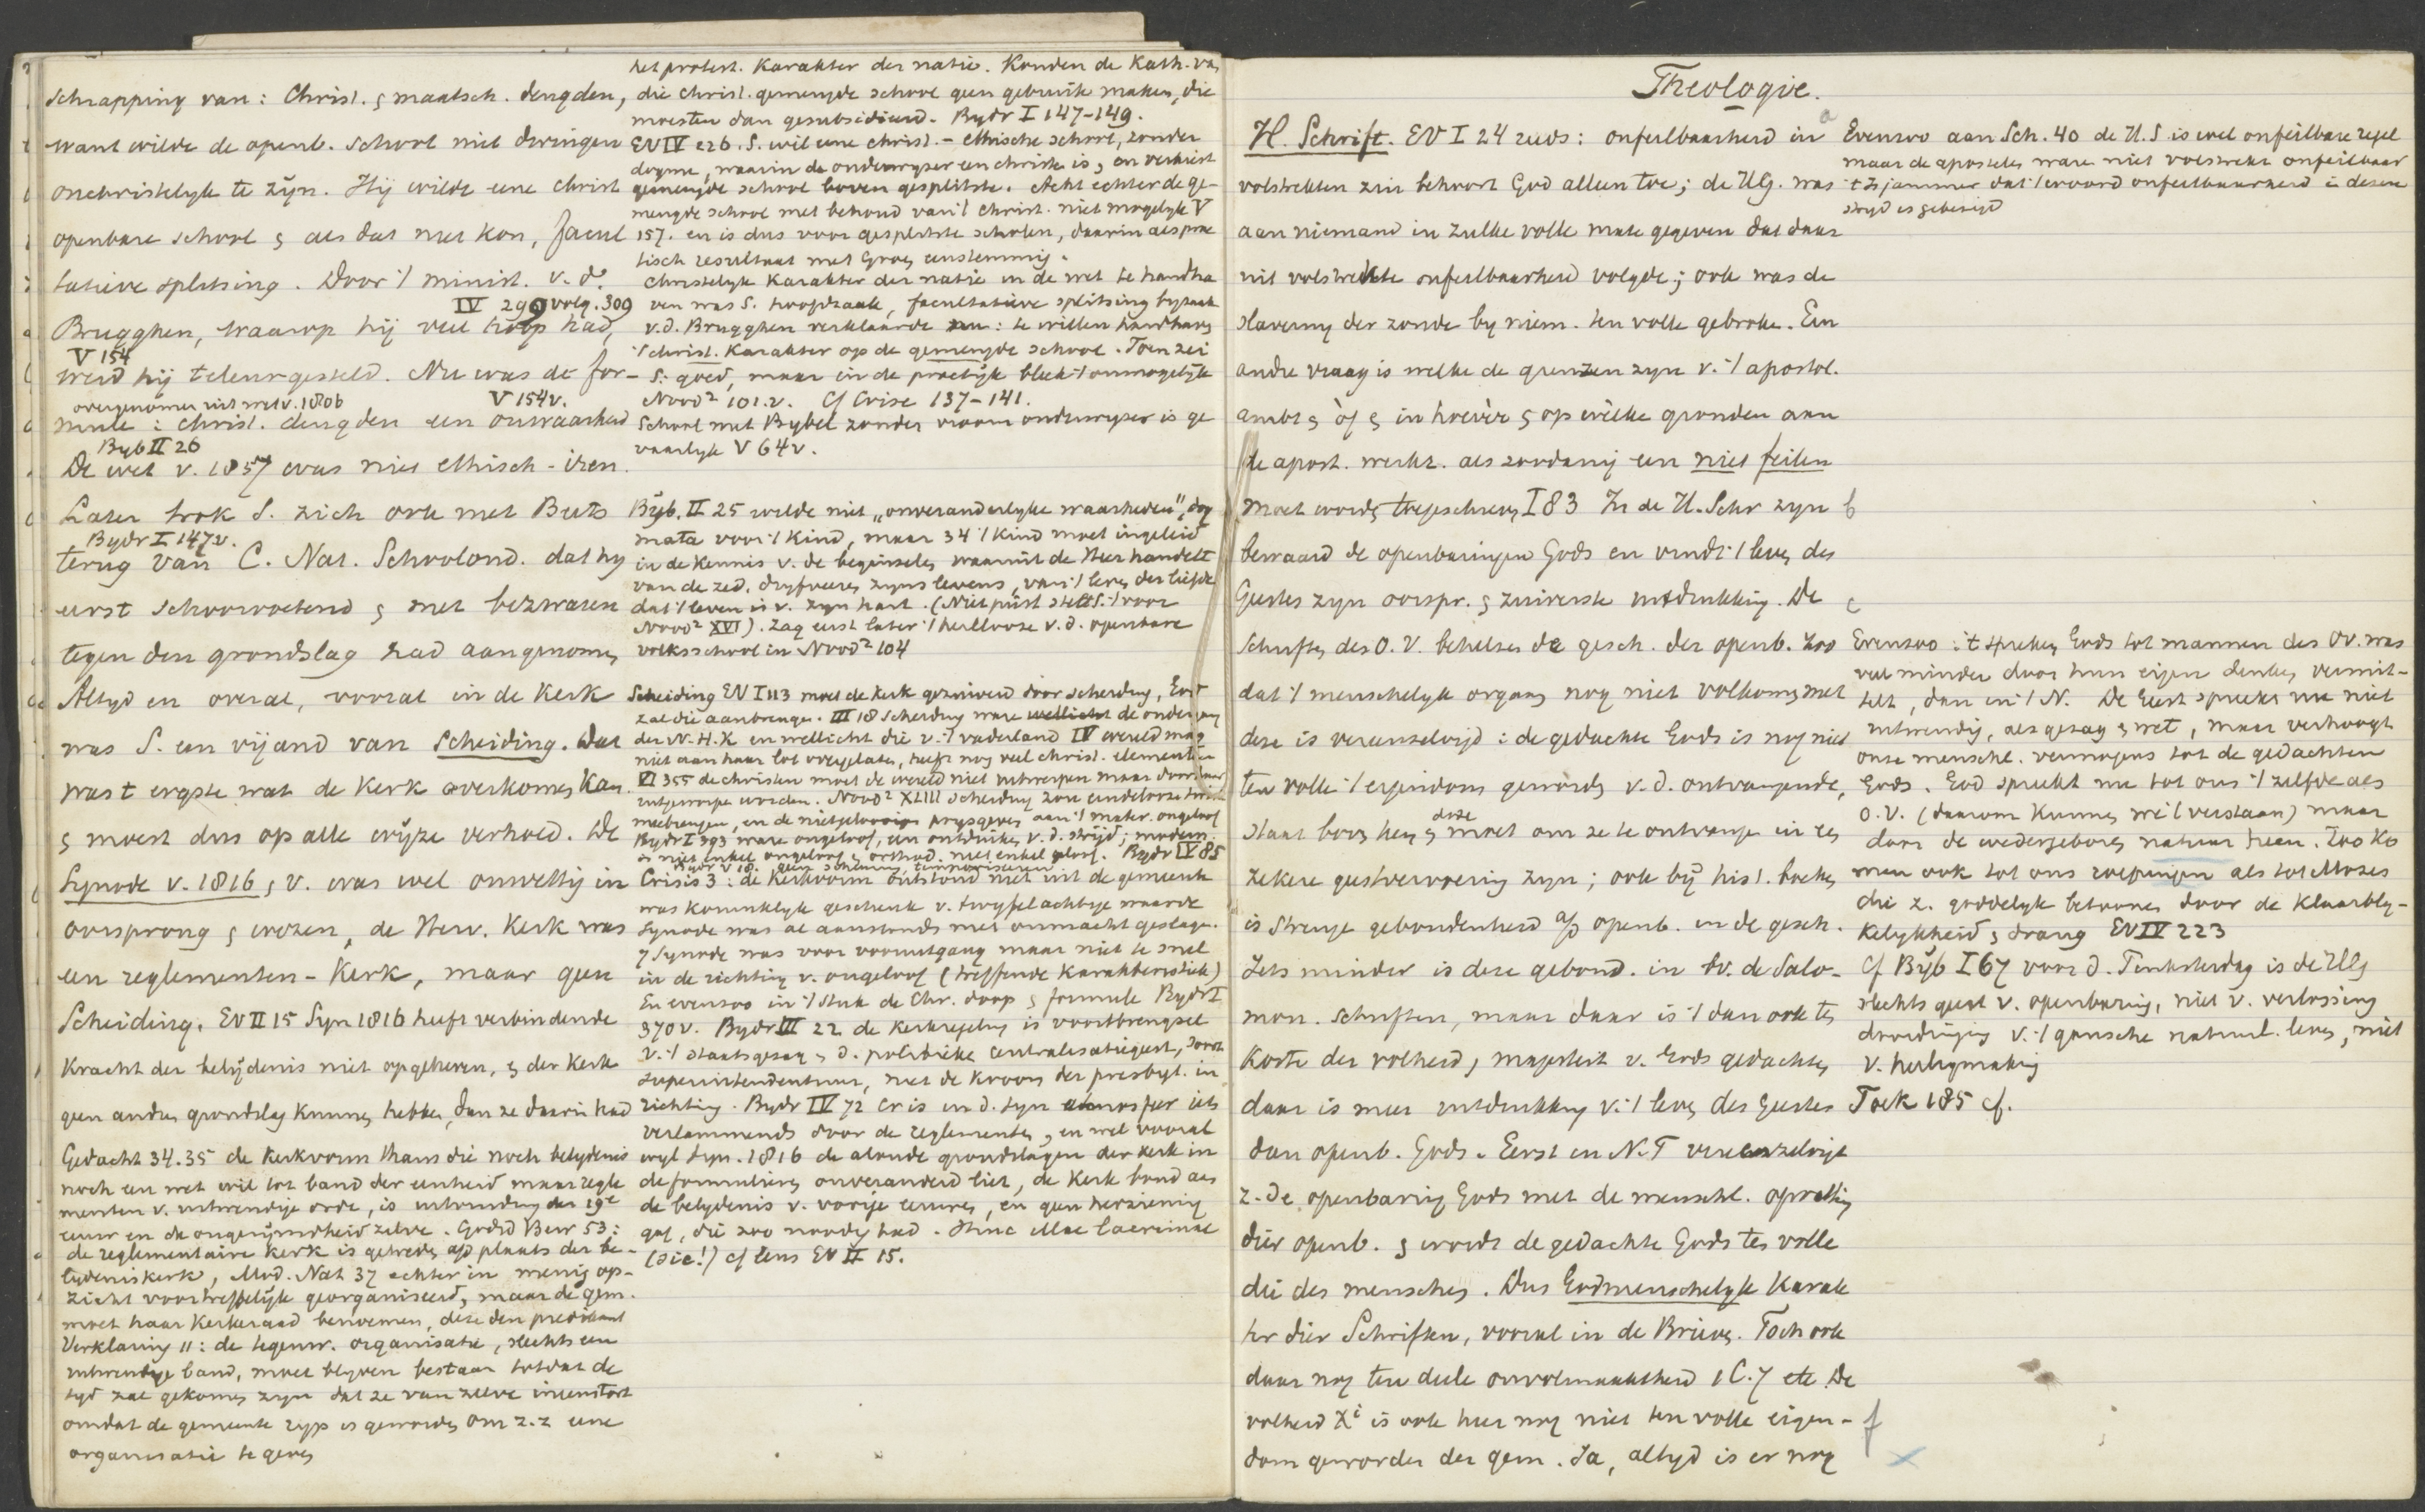 schrapping van: Christ. & maatsch. deugden,
want wilde de openb. school niet dwingen
onchristelyk te zijn. Hij wilde eene christ
openbare school & als dat niet kon, facul
tatieve splitsing. Door 't minist. v. d.
IV 299 volg. 309
Brugghen, waarop hij veel hoop had,
V 154
werd hij teleurgesteld. Nu was de for-
overgenomen uit wet v. 1806 V 154v.
mule: christ. deugden een onwaarheid
Byb II 26
De wet v. 1857 was niet ethisch-iren.
Later trok S. zich ook met Beets
Bydr I 147v.
terug van C. Nat. Schoolond. dat hy
eerst schoorvoetend & met bezwaren
tegen den grondslag had aangenomen
Altyd en overal, vooral in de Kerk
was S. een vijand van Scheiding. Dat
was t ergste wat de Kerk overkomen kan
& moest dus op alle wijze verhoed. De
Synode v. 1816, v. was wel onwettig in
oorsprong & wezen, de Herv. Kerk was
een reglementen-Kerk, maar geen
Scheiding. EV II 15 Syn 1816 heeft verbindende
Kracht der belijdenis niet opgeheven, & der Kerk
geen andren grondslag kunnen hebben, dan ze daarin had
Gedacht 34.35 de kerkvorm thans die noch belydenis
noch een wet wil tot band der eenheid maar regle
menten v. uitwendige orde, is uitvinding der 19e
eeuw en de ongerijmdheid zelve. Godsd Bew 53:
de reglementaire kerk is getreden op plaats der be-
lydeniskerk, Mod. Nat 37 echter in menig op-
zicht voortreffelijk georganiseerd, maar de gem.
moet haar Kerkeraad benoemen, deze den predikant
Verklaring 11: de tegenw. organisatie, slechts een
uitwendige band, moet blyven bestaan totdat de
tyd zal gekomen zyn dat ze van zelve ineenstort
omdat de gemeente ryp is geworden om z.z eene
organisatie te geven
het protest. Karakter der natie. Konden de Kath. van
die christ. gemengde school geen gebruik maken, die
moesten dan gesubsidieerd. Bydr I 147-149.
EV IV 226. S. wil eene christ.-ethische school, zonder
dogme, waarin de onderwyzer een christen is, en verkiest
gemengde school boven gesplitste. Acht echter de ge-
mengde school met behoud van 't christ. niet mogelyk V
157. en is dus voor gesplitste scholen, daarin als prac
tisch resultaat met Groen eenstemmig.
Christelyk Karakter der natie in de wet te handha
ven was S. hoofdzaak, facultatieve splitsing byzaak
v.d. Brugghen verklaarde nu: te willen handhaven
't christ. Karakter op de gemengde school. Toen zei
S: goed, maar in de practijk bleek 't onmogelijk
Nood² 101.v. Cf Crise 137-141.
School met Bybel zonder vroom onderwyzer is ge
vaarlyk V 64v.
Byb. II 25 wilde niet „onveranderlyke waarheden", dog
mata voor 't kind, maar 34 't kind moet ingeleid
in de kennis v. de beginselen waaruit de Heer handelt
van de zed. dryfveeren zyns levens, van 't leven der liefde
dat 't leven is v. zyn hart. (Niet juist stelt S. 't voor
Nood² XVI). Zag eerst later 't heillooze v.d. openbare
volksschool in Nood² 104
Scheiding EV I 113 moet de kerk gezuiverd door scheiding, God
zal die aanbrengen. III 18 Scheiding ware wellicht de ondergang
der N.H.K en wellicht die v. 't vaderland IV wereld mag
niet aan haar lot overgelaten, heeft nog veel christ. elementen
VI 355 de christen moet de wereld niet uitwerpen maar door haar
uitgeworpen worden. Nood² XLIII scheiding zou eindelooze twist
meebrengen, en de nietgeloovigen prysgeven aan 't mater. ongeloof
Bydr I 393 ware ongeloof, een ontduiken v.d. strijd; modern.
is niet enkel ongeloof & orthod. niet enkel geloof. Bydr IV 85
Bydr V 18. geen scheuring, temporiseeren
Crisis 3: de kerkvorm ontstond niet uit de gemeente
was koninklyk geschenk v. twyfelachtige waarde
Synode was al aanstonds met onmacht geslagen.
7 Synode was voor vooruitgang maar niet te snel
in de richting v. ongeloof (treffende karakteristiek)
En evenzoo in 't stuk de Chr. doop & formule Bydr I
370v. Bydr III 22 de kerkregeling is voortbrengsel
v. 't staatsgezag & d. politieke centralisatiegeest, soort
superintendentuur, met de kroon der presbyt. in
richting. Bydr IV 72 Er is in d. syn atmosfeer iets
verlammends door de reglementen, en wel vooral
wyl Syn. 1816 de aloude grondslagen der kerk in
de formulieren onveranderd liet, de Kerk bond aan
de belydenis v. vorige eeuwen, en geen herziening
gaf, die zoo noodig had. Hinc illae lacrimae
(sic!) cf lens EV II 15.
Theologie.
H. Schrift. EV I 24 reeds: onfeilbaarheid in a
volstrekten zin behoort God alleen toe; de H.G. was
aan niemand in zulke volle mate gegeven dat daar
uit volstrekte onfeilbaarheid volgde; ook was de
slaverny der zonde by niem. ten volle gebroke. Een
andre vraag is welke de grenzen zyn v. 't apostol.
ambt & òf & in hoevèr & op wèlke gronden aan
de apost. werkz. als zoodanig een niet feilen
moet worden toegeschreven I 83 In de H. Schr zyn b
bewaard de openbaringen Gods en vindt 't leven des
Geestes zyn oorspr. & zuiverste uitdrukking. De c
Schriften des O.V. behelzen de gesch. der openb. zoo
dat 't menschelyk orgaan nog niet volkomen met
deze is vereenzelvigd: de gedachte Gods is nog niet
ten volle 't eigendom geworden v.d. ontvangende,
staat boven hem, & deze moet om ze te ontvangen in een
zekere geestvervoering zyn; ook bij hist. boeken
is strenge gebondenheid a/d openb. in de gesch.
Iets minder is deze gebond. in bv. de Salo-
mon. schriften, maar daar is 't dan ook ten
koste der volheid, majesteit v. Gods gedachten,
daar is meer uitdrukking v. 't leven des Geestes
dan openb. Gods. Eerst in N.T vereenzelvigt
z. de openbaring Gods met de menschl. opvatting
dier openb. & wordt de gedachte Gods ten volle
die des menschen. Dus Godmenschelyk Karak
ter dier Schriften, vooral in de Brieven. Toch ook
daar nog ten deele onvolmaaktheid 1 C. 7 etc. De
volheid Xi is ook hier nog niet ten volle eigen- f
dom geworden der gem. Ja, altyd is er nog
Evenzoo aan Sch. 40 de H.S is wel onfeilbare regel
maar de apostelen waren niet volstrekt onfeilbaar
't Is jammer dat 't woord onfeilbaarheid in dezen
stryd is gebezigd
Evenzoo: 't spreken Gods tot mannen des OV. was
veel minder door hun eigen denken vermid-
deld, dan in 't N. De Geest spreekt nu niet
uitwendig, als gezag & wet, maar verhoogt
onze menschl. vermogens tot de gedachten
Gods. God spreekt nu tot ons 't zelfde als
O.V. (daarom kunnen we 't verstaan) maar
door de wedergeboren natuur heen. Zoo ko
men ook tot ons roepingen als tot Mozes
die z. goddelyk betoonen door de klaarbly-
kelykheid & drang EV IV 223
Cf Byb I 67 voor d. Pinksterdag is de H.G
slechts geest v. openbaring, niet v. verlossing
doordringing v. 't gansche natuurl. leven, niet
v. heiligmaking
Toek 185 cf.